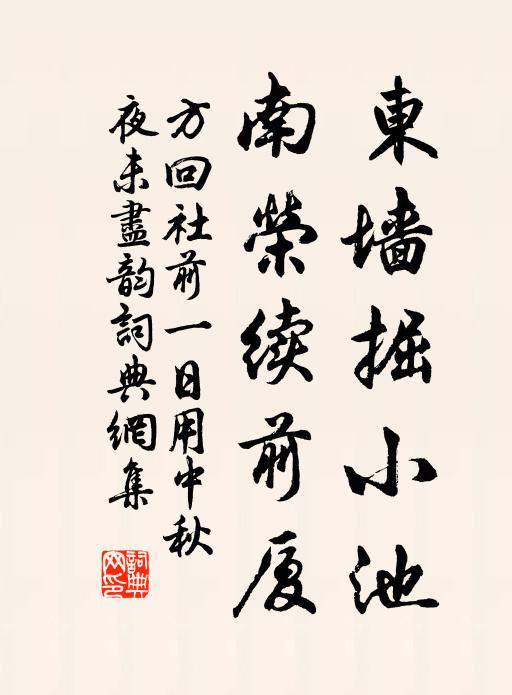 東墙掘小池
南榮续前厦
方回社前一日用中秋
夜未盡韵詞典網集
詞典網印